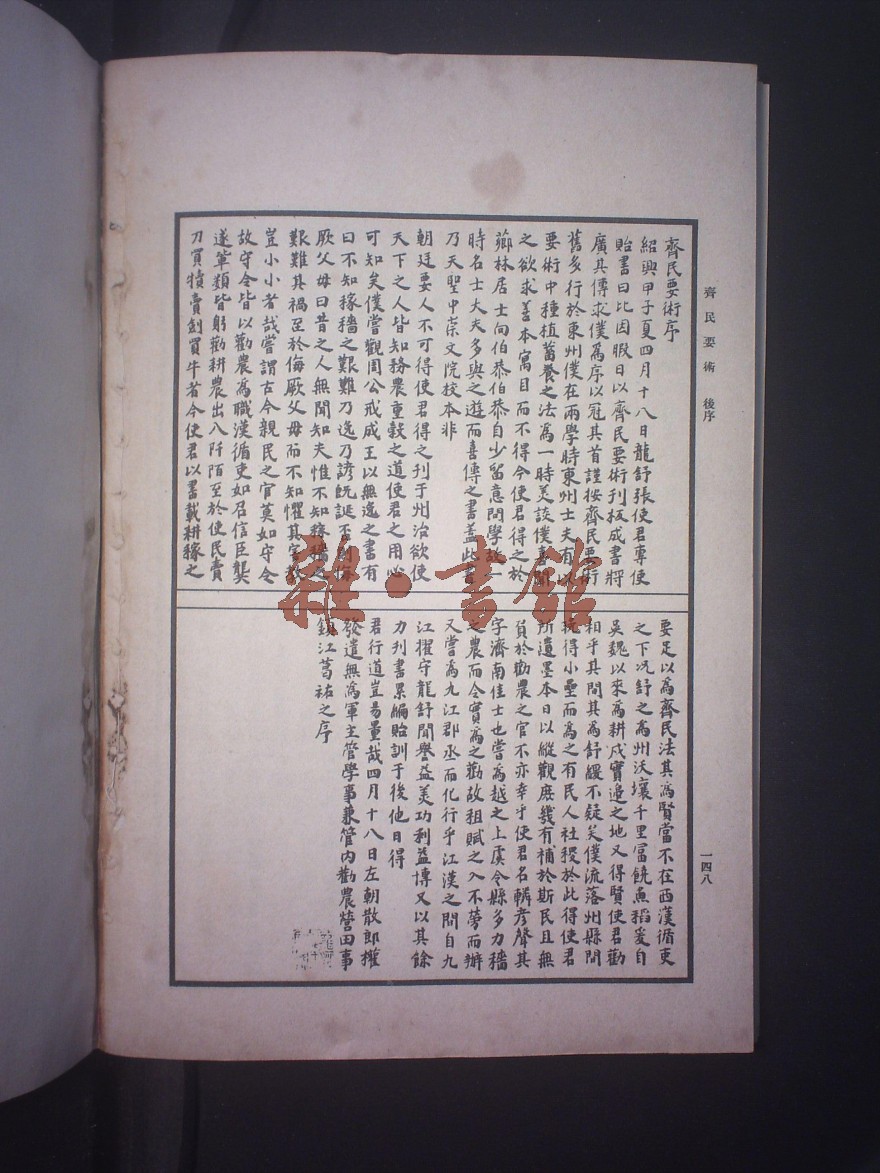 齊民要術　後序
齊民要術序
紹興甲子夏四月十八日龍舒張使君專使
貽書曰比因暇日以齊民要術刊板成書將
廣其傳求僕爲序以冠其首謹按齊民要術
舊多行於東州僕在兩學時東州士夫有以
要術中種植蓄養之法爲一時美談僕喜聞
之欲求善本寓目而不得今使君得之於
薌林居士向伯恭伯恭自少留意問學故一
時名士大夫多與之遊而喜傳之書蓋此書
乃天聖中崇文院校本非
朝廷要人不可得使君得之刊于州治欲使
天下之人皆知務農重穀之道使君之用心
可知矣僕嘗觀周公戒成王以無逸之書有
曰不知稼穡之艱難乃逸乃諺旣誕否則侮
厥父母曰昔之人無聞知夫惟不知稼穡之
艱難其禍至於侮厥父母而不知懼其害教
豈小小者哉嘗謂古今親民之官莫如守令
故守令皆以勸農爲職漢循吏如召信臣龔
遂輩類皆躬勸耕農出入阡陌至於使民賣
刀買犢賣劍買牛者今使君以書載耕稼之
要足以爲齊民法其爲賢當不在西漢循吏
之下況舒之爲州沃壤千里富饒魚稻爰自
吳魏以來爲耕戍實邊之地又得賢使君勸
相乎其間其爲舒緩不疑矣僕流落州縣間
玩得小壘而爲之有民人社稷於此得使君
所遺墨本日以縱觀庶幾有補於斯民且無
負於勸農之官不亦幸乎使君名轔彥聲其
字濟南佳士也嘗爲越之上虞令縣多力穡
之農而令實爲之勸故租賦之入不勞而辦
又嘗爲九江郡丞而化行乎江漢之間自九
江擢守龍舒聞譽益美功利益博又以其餘
力刊書累編貽訓于後他日得
君行道豈易量哉四月十八日左朝散郎權
發遣無爲軍主管學事兼管内勸農營田事
鎮江葛祐之序
一四八
雜·書館